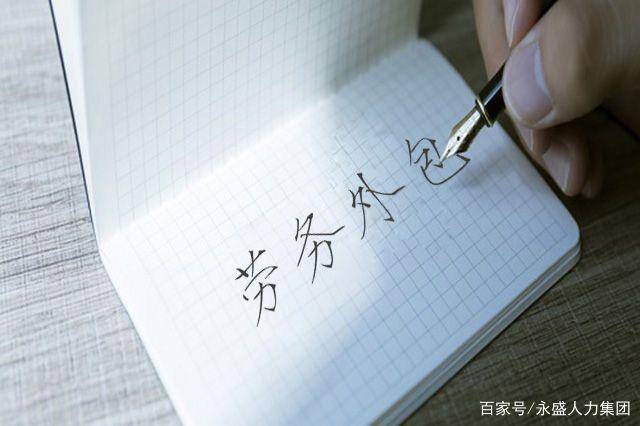 劳务外包
百家号/永盛人力集团